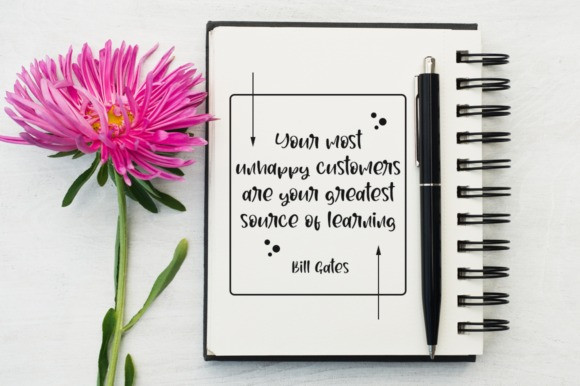 Your most
unhappy customers
are your greatest
source of learning
Bill Gates